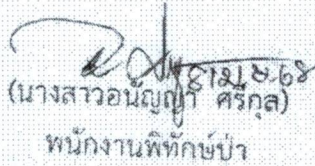 (นางสาวอนัญญา ศรีกุล)
พนักงานพิทักษ์ป่า